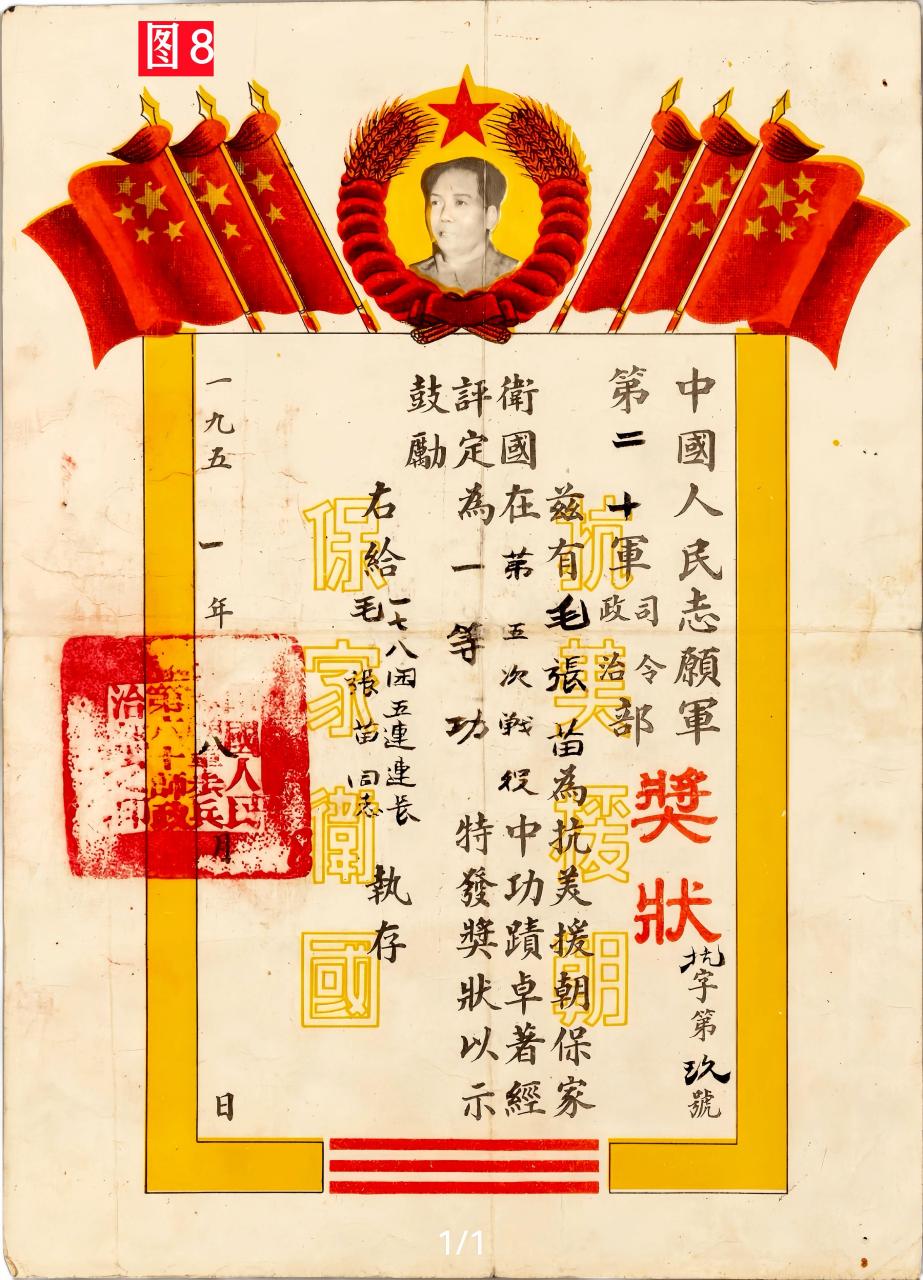 图8
中國人民志願軍
第二十軍司令政治部
獎狀
抗字第玖號
茲有毛張苗為抗美援朝保家
衛國在第五次戦役中功蹟卓著經
評定為一等功 特發獎狀以示
鼓勵
右給一七八团五連連长
毛張苗同志 執存
一九五一年八月 日
抗美援朝
保家衛國
國人民
第六十師政
治
1/1